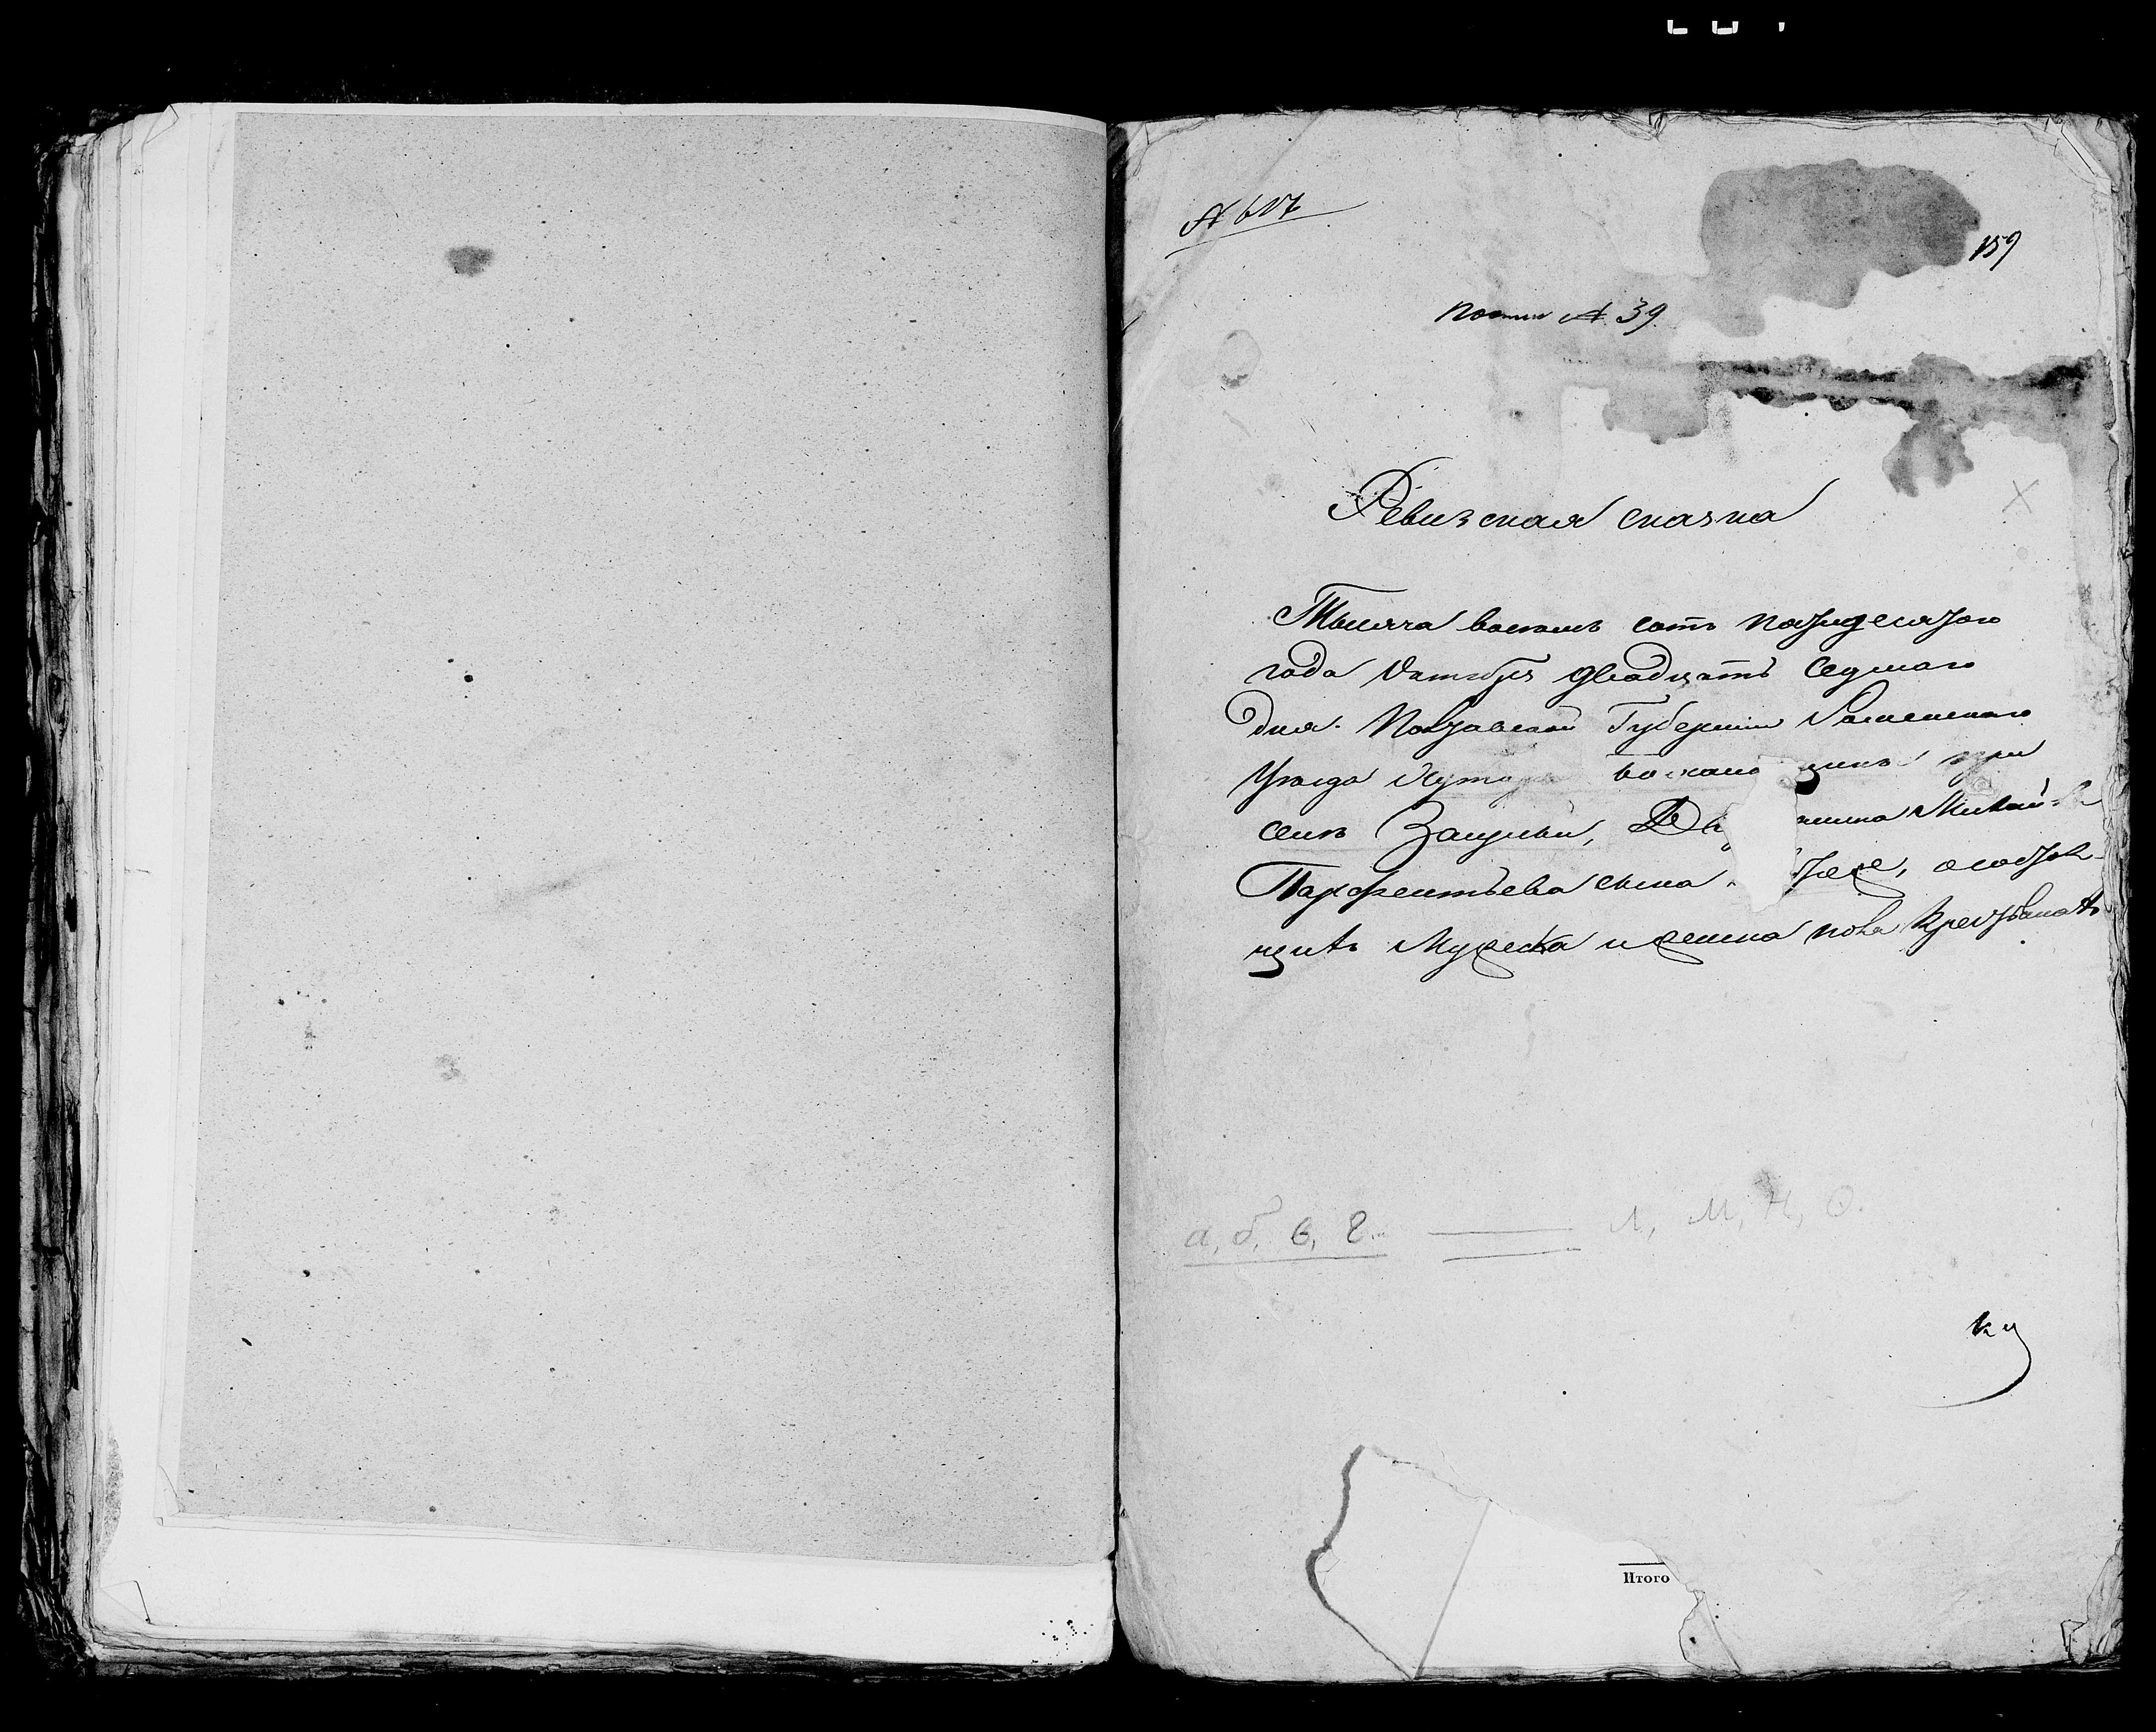 № 617
159
по описи № 39.
Ревизская сказка
Тысяча восемь сотъ пятидесятого
года Октября двадцать седмаго
дня. Полтавской Губерніи Роменскаго
Уезда Хутора при
селе Засульи, Михайла
Парфентьева сына о состоя-
щихъ мужеска и женска пола крестьянахъ
а, б, в, г. Л, М, Н, О.
Итого